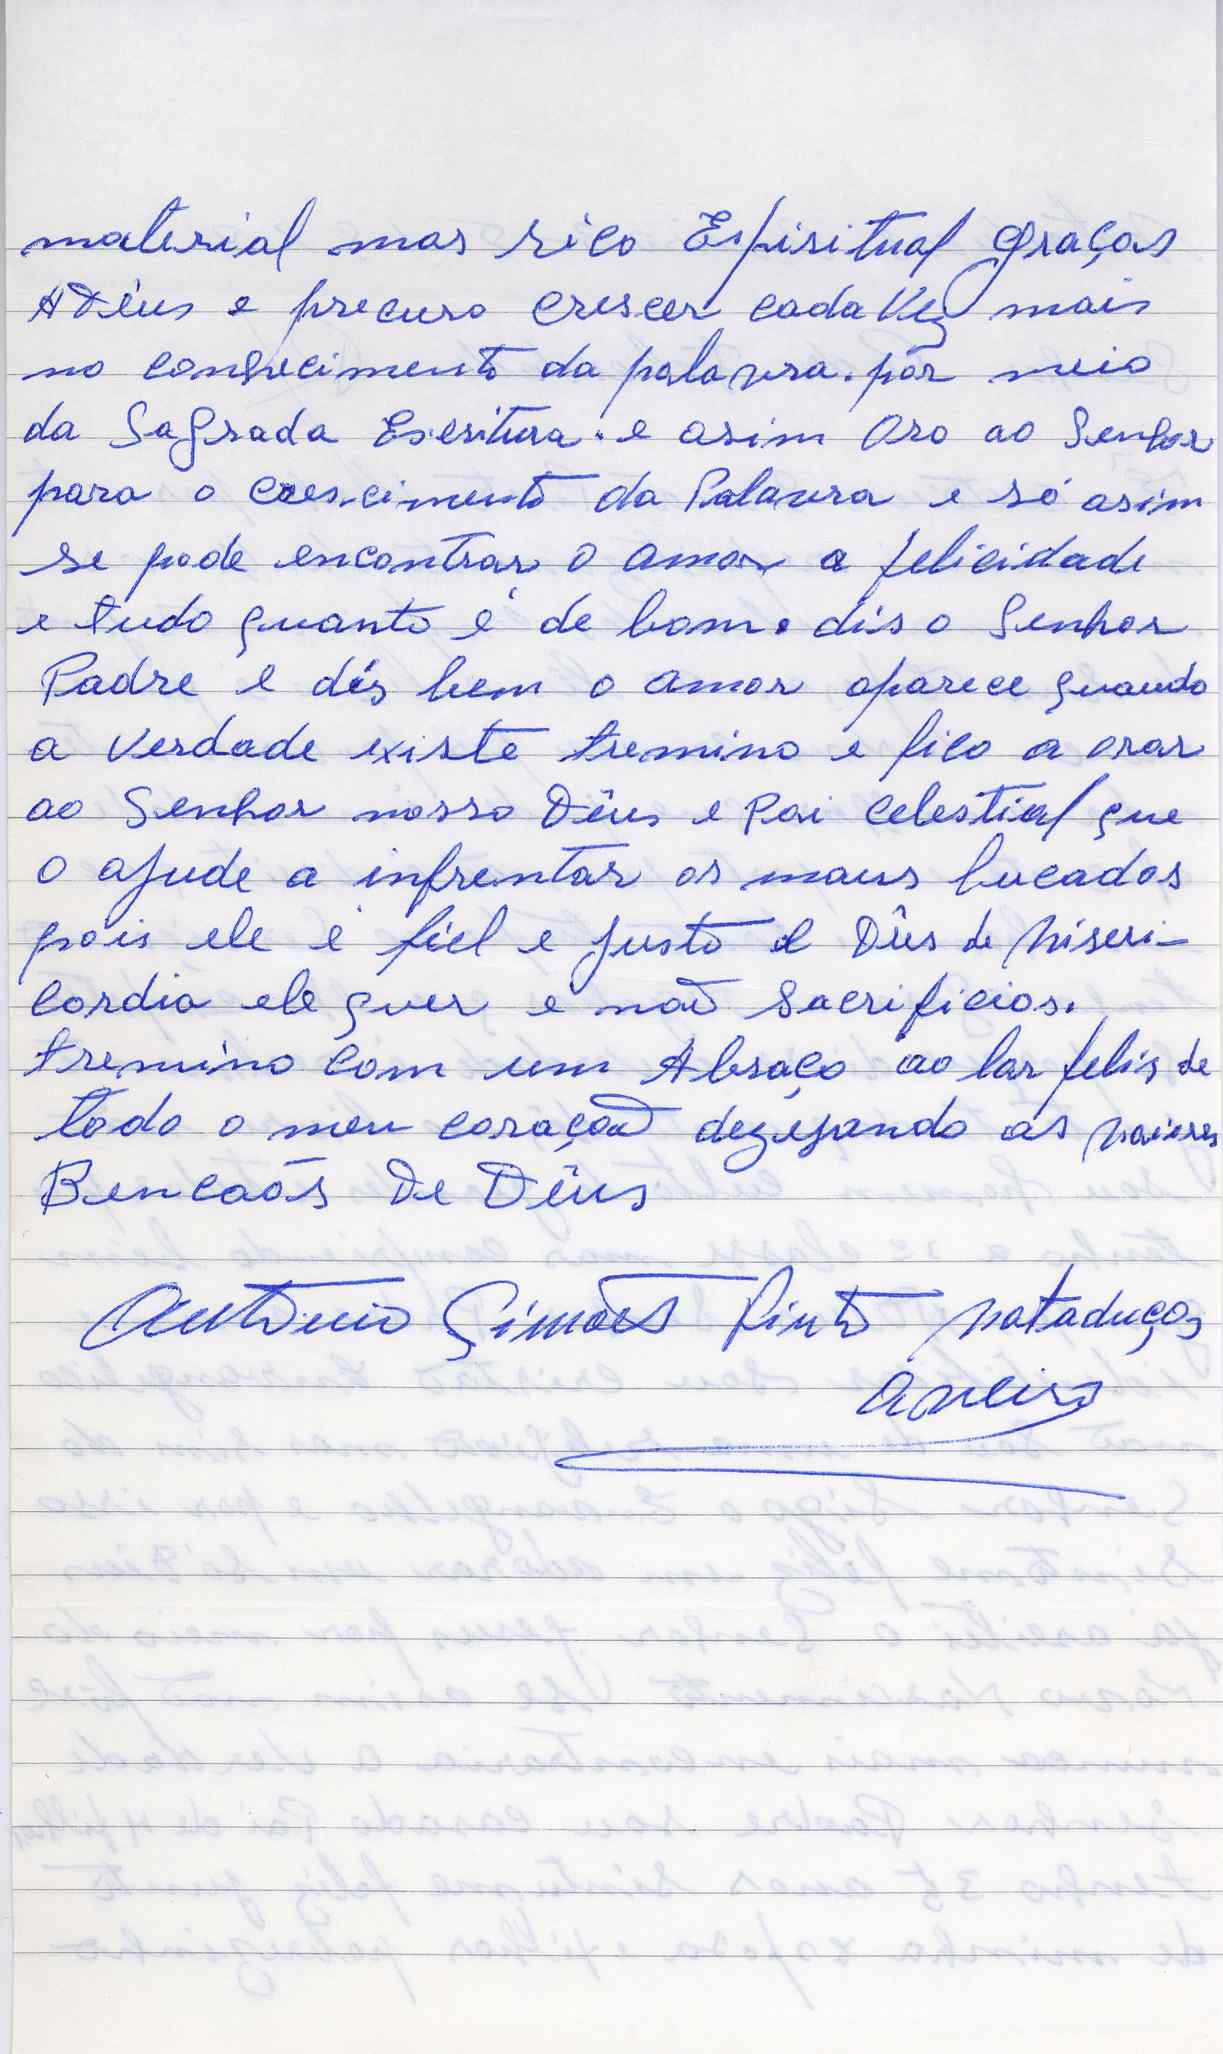 material mas rico Espiritual graças
A Dêus e precuro crescer cada vez mais
no conhecimento da palavra. por meio
da Sagrada Escritura. e asim Oro ao Senhor
para o crescimento da Palavra e só asim
se pode encontrar o amor a felicidade
e tudo quanto é de bom. dis o Senhor
Padre e dis bem o amor aparece quando
a verdade existe tremino e fico a orar
ao Senhor nosso Dêus e Pai celestial que
o ajude a infrentar os maus bucados
pois ele é fiel e justo e Dêus de Miseri-
cordia ele quer e não Sacrificios.
tremino com um Abraço ao lar felis de
todo o meu coração dezejando as maiores
Bencãos De Dêus
António Simões Pinto Mataduços
Aveiro